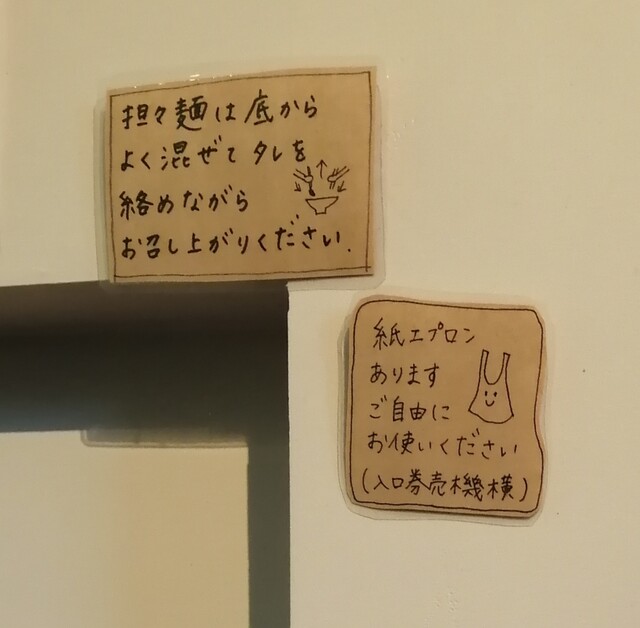 担々麺は底から
よく混ぜてタレを
絡めながら
お召し上がりください.
紙エプロン
あります
ご自由に
お使いください
(入口券売機横)